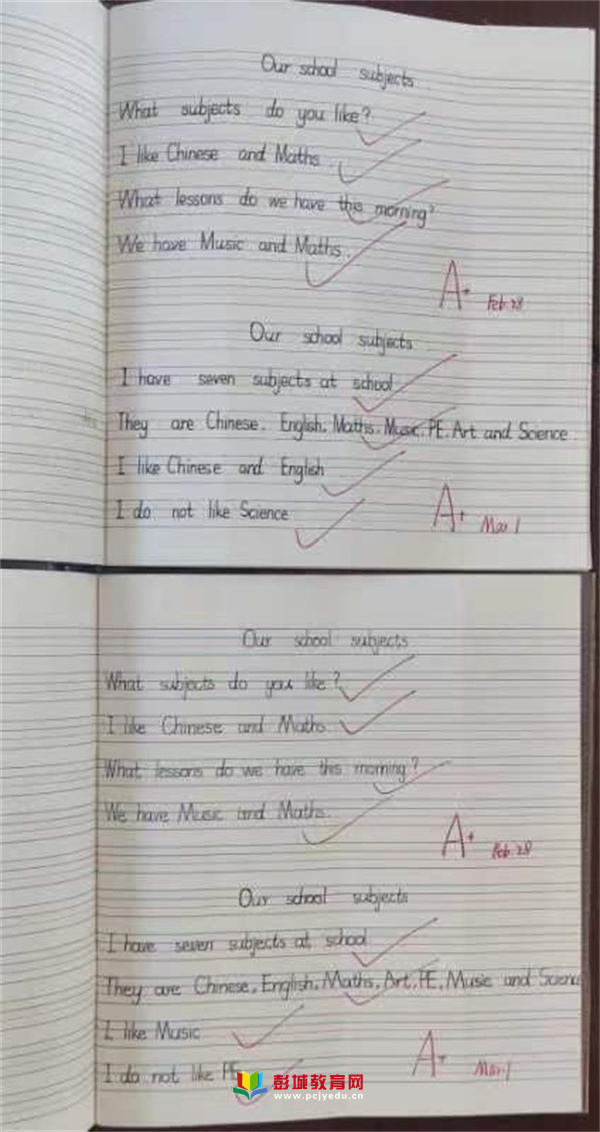 Our school subjects
What subjects do you like?
I like Chinese and Maths.
What lessons do we have this morning?
We have Music and Maths.
A+ Feb.28
Our school subjects
I have seven subjects at school
They are Chinese, English, Maths, Music, PE, Art and Science.
I like Chinese and English
I do not like Science
A+ Mar.1
Our school subjects
What subjects do you like?
I like Chinese and Maths
What lessons do we have this morning?
We have Music and Maths.
A+ Feb.28
Our school subjects
I have seven subjects at school
They are Chinese, English, Maths, Art, PE, Music and Science
I like Music
I do not like PE
A+ Mar.1
彭城教育网
www.pcjyedu.cn